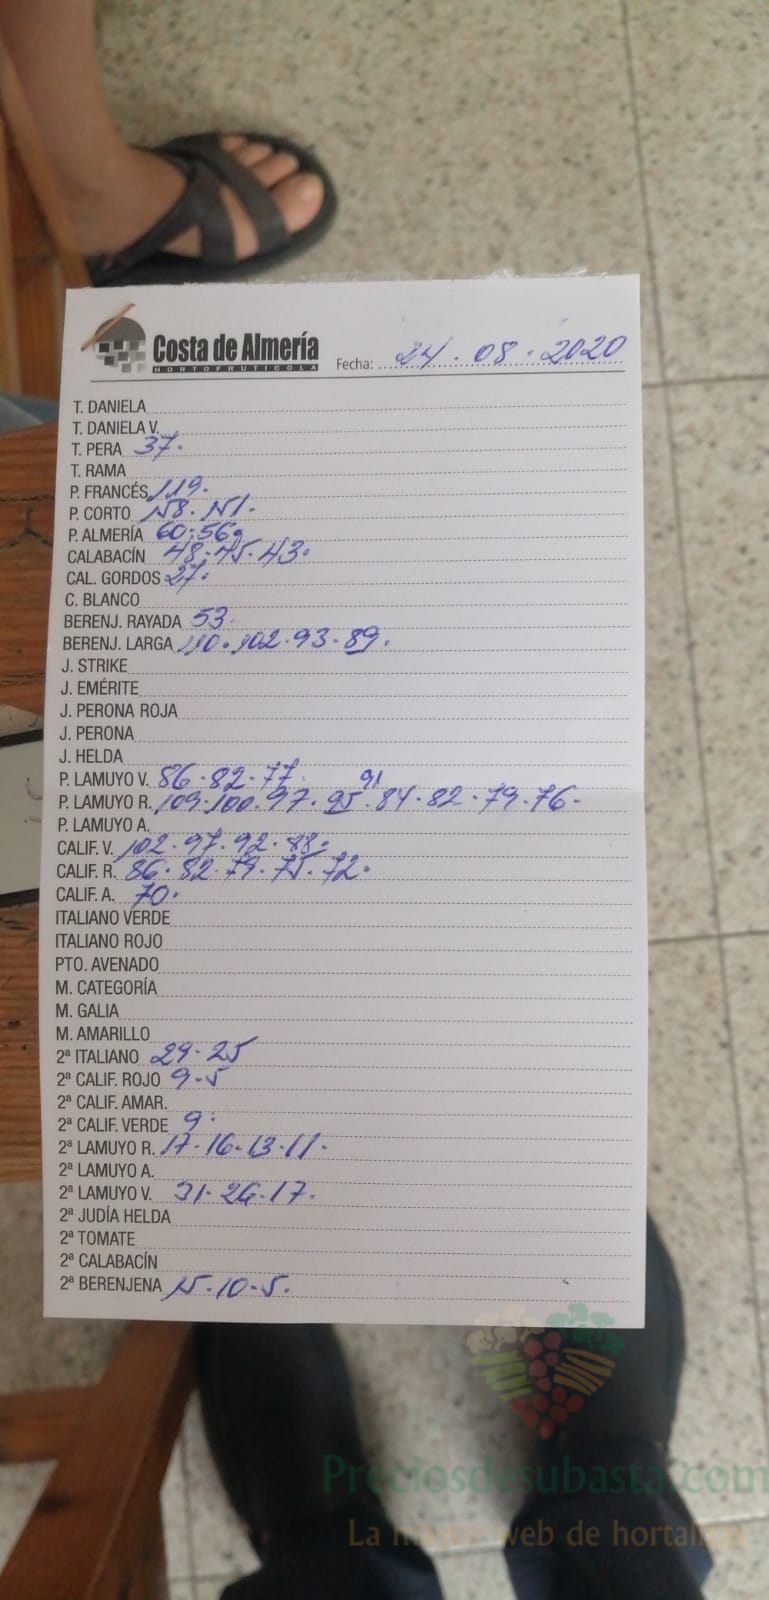 Costa de Almería
HORTOFRUTICOLA
Fecha: 24 · 08 · 2020
T. DANIELA
T. DANIELA V.
T. PERA 37·
T. RAMA
P. FRANCÉS 119·
P. CORTO 158· 151·
P. ALMERÍA 60·56
CALABACÍN 48·45·43·
CAL. GORDOS 27·
C. BLANCO
BERENJ. RAYADA 53·
BERENJ. LARGA 110·102·93·89·
J. STRIKE
J. EMÉRITE
J. PERONA ROJA
J. PERONA
J. HELDA
P. LAMUYO V. 86·82·77·
91
P. LAMUYO R. 109·100·97·95·84·82·79·76·
P. LAMUYO A.
CALIF. V. 102·97·92·88·
CALIF. R. 86·82·79·75·72·
CALIF. A. 70·
ITALIANO VERDE
ITALIANO ROJO
PTO. AVENADO
M. CATEGORÍA
M. GALIA
M. AMARILLO
2ª ITALIANO 29·25
2ª CALIF. ROJO 9·5
2ª CALIF. AMAR.
2ª CALIF. VERDE 9·
2ª LAMUYO R. 17·16·13·11·
2ª LAMUYO A.
2ª LAMUYO V. 31·26·17·
2ª JUDÍA HELDA
2ª TOMATE
2ª CALABACÍN
2ª BERENJENA 15·10·5·
Preciosdesubasta.com
La mayor web de hortalizas